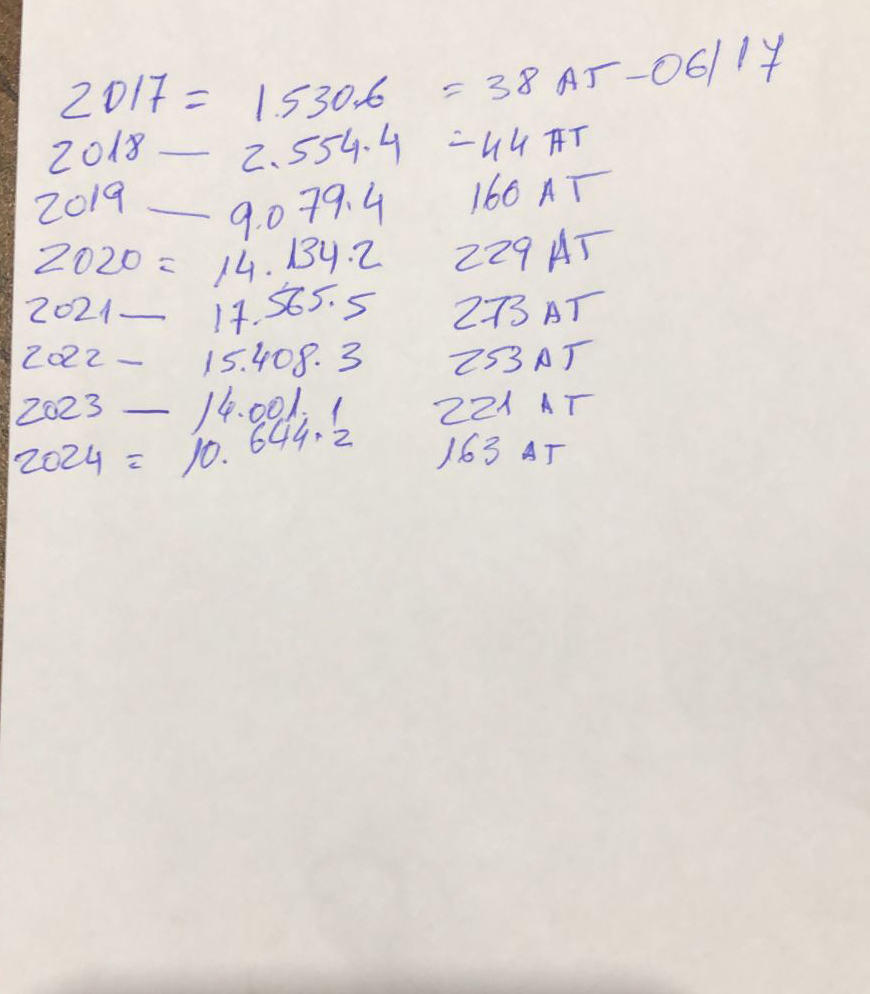 2017 = 1.530.6 = 38 AT - 06/17
2018 — 2.554.4 = 44 AT
2019 — 9.079.4 160 AT
2020 = 14.134.2 229 AT
2021 — 17.565.5 273 AT
2022 - 15.408.3 253 AT
2023 — 14.001.1 221 AT
2024 = 10.644.2 163 AT